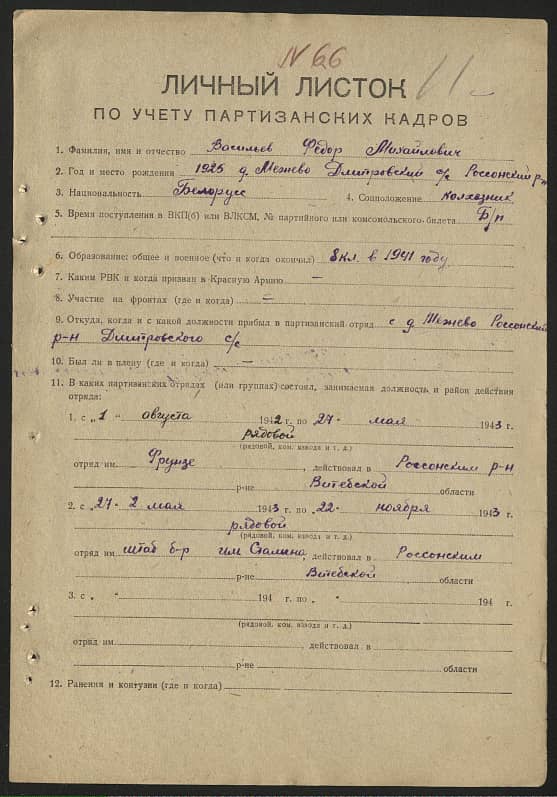 N 66
ЛИЧНЫЙ ЛИСТОК 11
ПО УЧЕТУ ПАРТИЗАНСКИХ КАДРОВ
1. Фамилия, имя и отчество Васильев Федор Михайлович
2. Год и место рождения 1925 д. Межево Дмитровский с/с Россонский р-н
3. Национальность Белорус 4. Соцположение колхозник
5. Время поступления в ВКП(б) или ВЛКСМ, № партийного или комсомольского билета Б/п
6. Образование: общее и военное (что и когда окончил) 8 кл. в 1941 году
7. Каким РВК и когда призван в Красную Армию —
8. Участие на фронтах (где и когда) —
9. Откуда, когда и с какой должности прибыл в партизанский отряд с д. Межево Россонский
р-н Дмитровского с/с
10. Был ли в плену (где и когда) —
11. В каких партизанских отрядах (или группах) состоял, занимаемая должность и район действия
отряда:
1. с „1 “ августа 1942 г. по 27 · мая 1943 г.
рядовой
(рядовой, ком. взвода и т. д.)
отряд им. Фрунзе , действовал в Россонским р-н
р-не Витебской области
2. с „27 · 2 мая 1943 г. по „22 · ноября 1943 г.
рядовой
(рядовой, ком. взвода и т. д.)
отряд им. штаб б-р им Сталина, действовал в Россонским
р-не Витебской области
3. с „ “ 194 г. по „ “ 194 г.
(рядовой, ком. взвода и т. д.)
отряд им. , действовал в
р-не области
12. Ранения и контузии (где и когда)